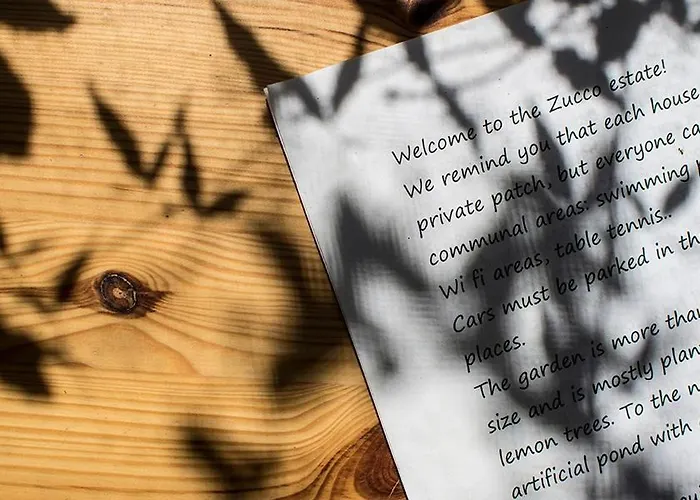 Welcome to the Zucco estate!
We remind you that each house
private patch, but everyone ca
communal areas: swimming
Wi fi areas, table tennis..
Cars must be parked in th
places.
The garden is more than
size and is mostly plan
lemon trees. To the n
artificial pond with